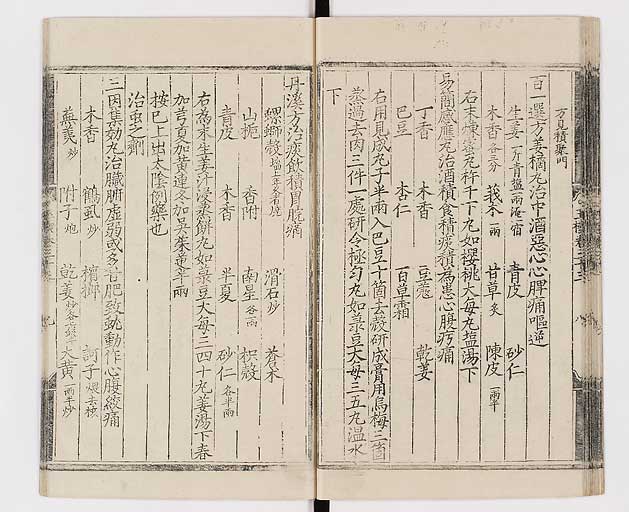 方見積聚門
百一選方姜橘丸治中酒惡心心脾痛嘔逆
生姜一斤青鹽一兩淹一宿 青皮 砂仁
木香各三分 莪朮一兩 甘草炙 陳皮一兩半
右末煉蜜丸杵千下丸如櫻桃大每丸塩湯下
易簡感應丸治酒積食積痰積為患心腹疼痛
丁香 木香 豆蔻 乾姜
巴豆 杏仁 百草霜
右用見成丸子半兩入巴豆十箇去殼研成膏用烏梅三箇
蒸過去肉三件一處研令極勻丸如菉豆大每三五丸温水
下
丹溪方治痰飲積胃脘痛
螺螄殼墻上年久者燒 滑石炒 蒼朮
山梔 香附 南星各二兩 枳殼
青皮 木香 半夏 砂仁各半兩
右為末生姜汁浸蒸餅丸如菉豆大每三四十丸姜湯下春
加芎夏加黃連冬加吳茱萸半兩
按已上出太陰例藥也
治虫之劑
三因集効丸治臟腑虛弱或多苦肥致蚘動作心腹絞痛
木香 鶴虱炒 檳榔 訶子煨去核
蕪荑炒 附子炮 乾姜 大黃一兩半炒